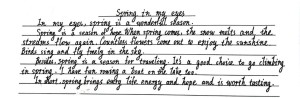 Spring in my eyes
In my eyes, spring is a wonderful season.
Spring is a season of hope. When spring comes, the snow melts and the
streams flow again. Countless flowers come out to enjoy the sunshine.
Birds sing and fly freely in the sky.
Besides, spring is a season for traveling. It's a good choice to go climbing
in spring. I have fun rowing a boat on the lake too.
In short, spring brings early life energy and hope, and is worth tasting.